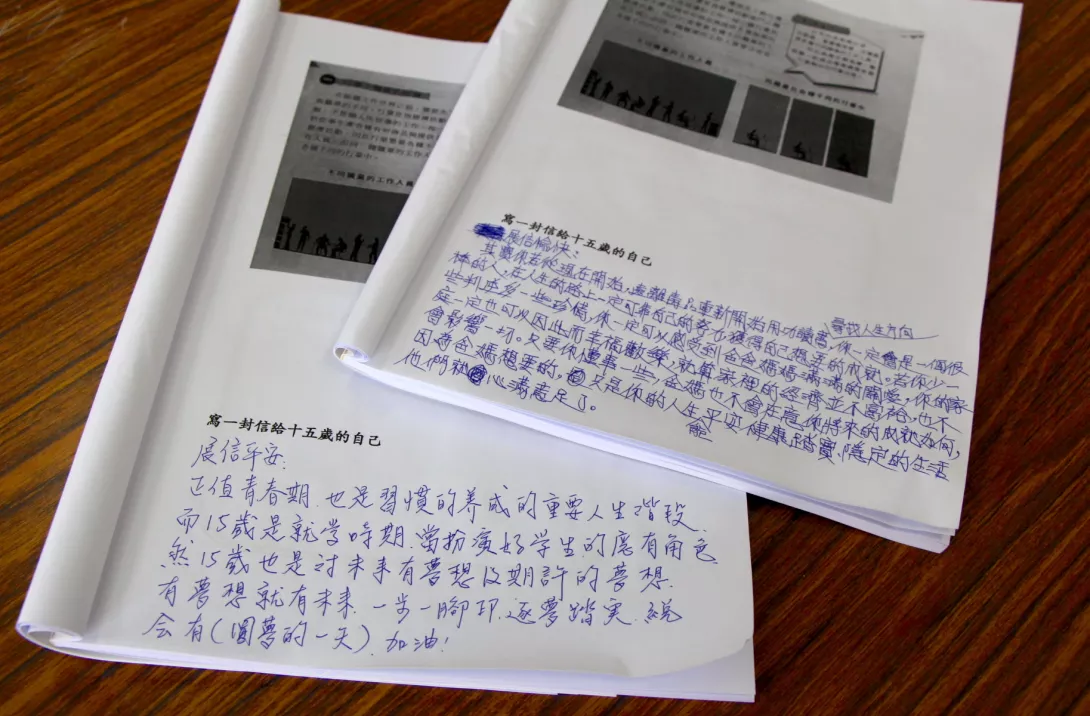 不同職業的工作人員
寫一封信給十五歲的自己
展信平安:
正值青春期.也是習慣的养成的重要人生階段.
而15歲是就学時期.當扮演好学生的應有角色
然15歲也是对未来有夢想及期許的夢想.
有夢想就有未来.一步一腳印.逐夢踏実.總
会有(圓夢的一天).加油!
不同職業的工作人員
同職業在各種不同的行業中
寫一封信給十五歲的自己
展信愉快:
其實你若從現在開始,遠離毒品重新開始用功讀書,尋找人生方向 你一定會是一個很
棒的人,在人生的路上一定可靠自己的努力獲得自己想要的成就。若你少一
些叛逆多一些珍惜,你一定可以感受到爸爸媽媽滿滿的關愛,你的家
庭一定也可以因此而幸福歡樂,就算家裡的經濟並不富裕,也不
會影響一切。只要你懂事一些,爸媽也不會在意你將來的成就為何,
因為爸媽想要的,只是你的人生平安健康踏實、穩定的生活
他們就會心滿意足了。